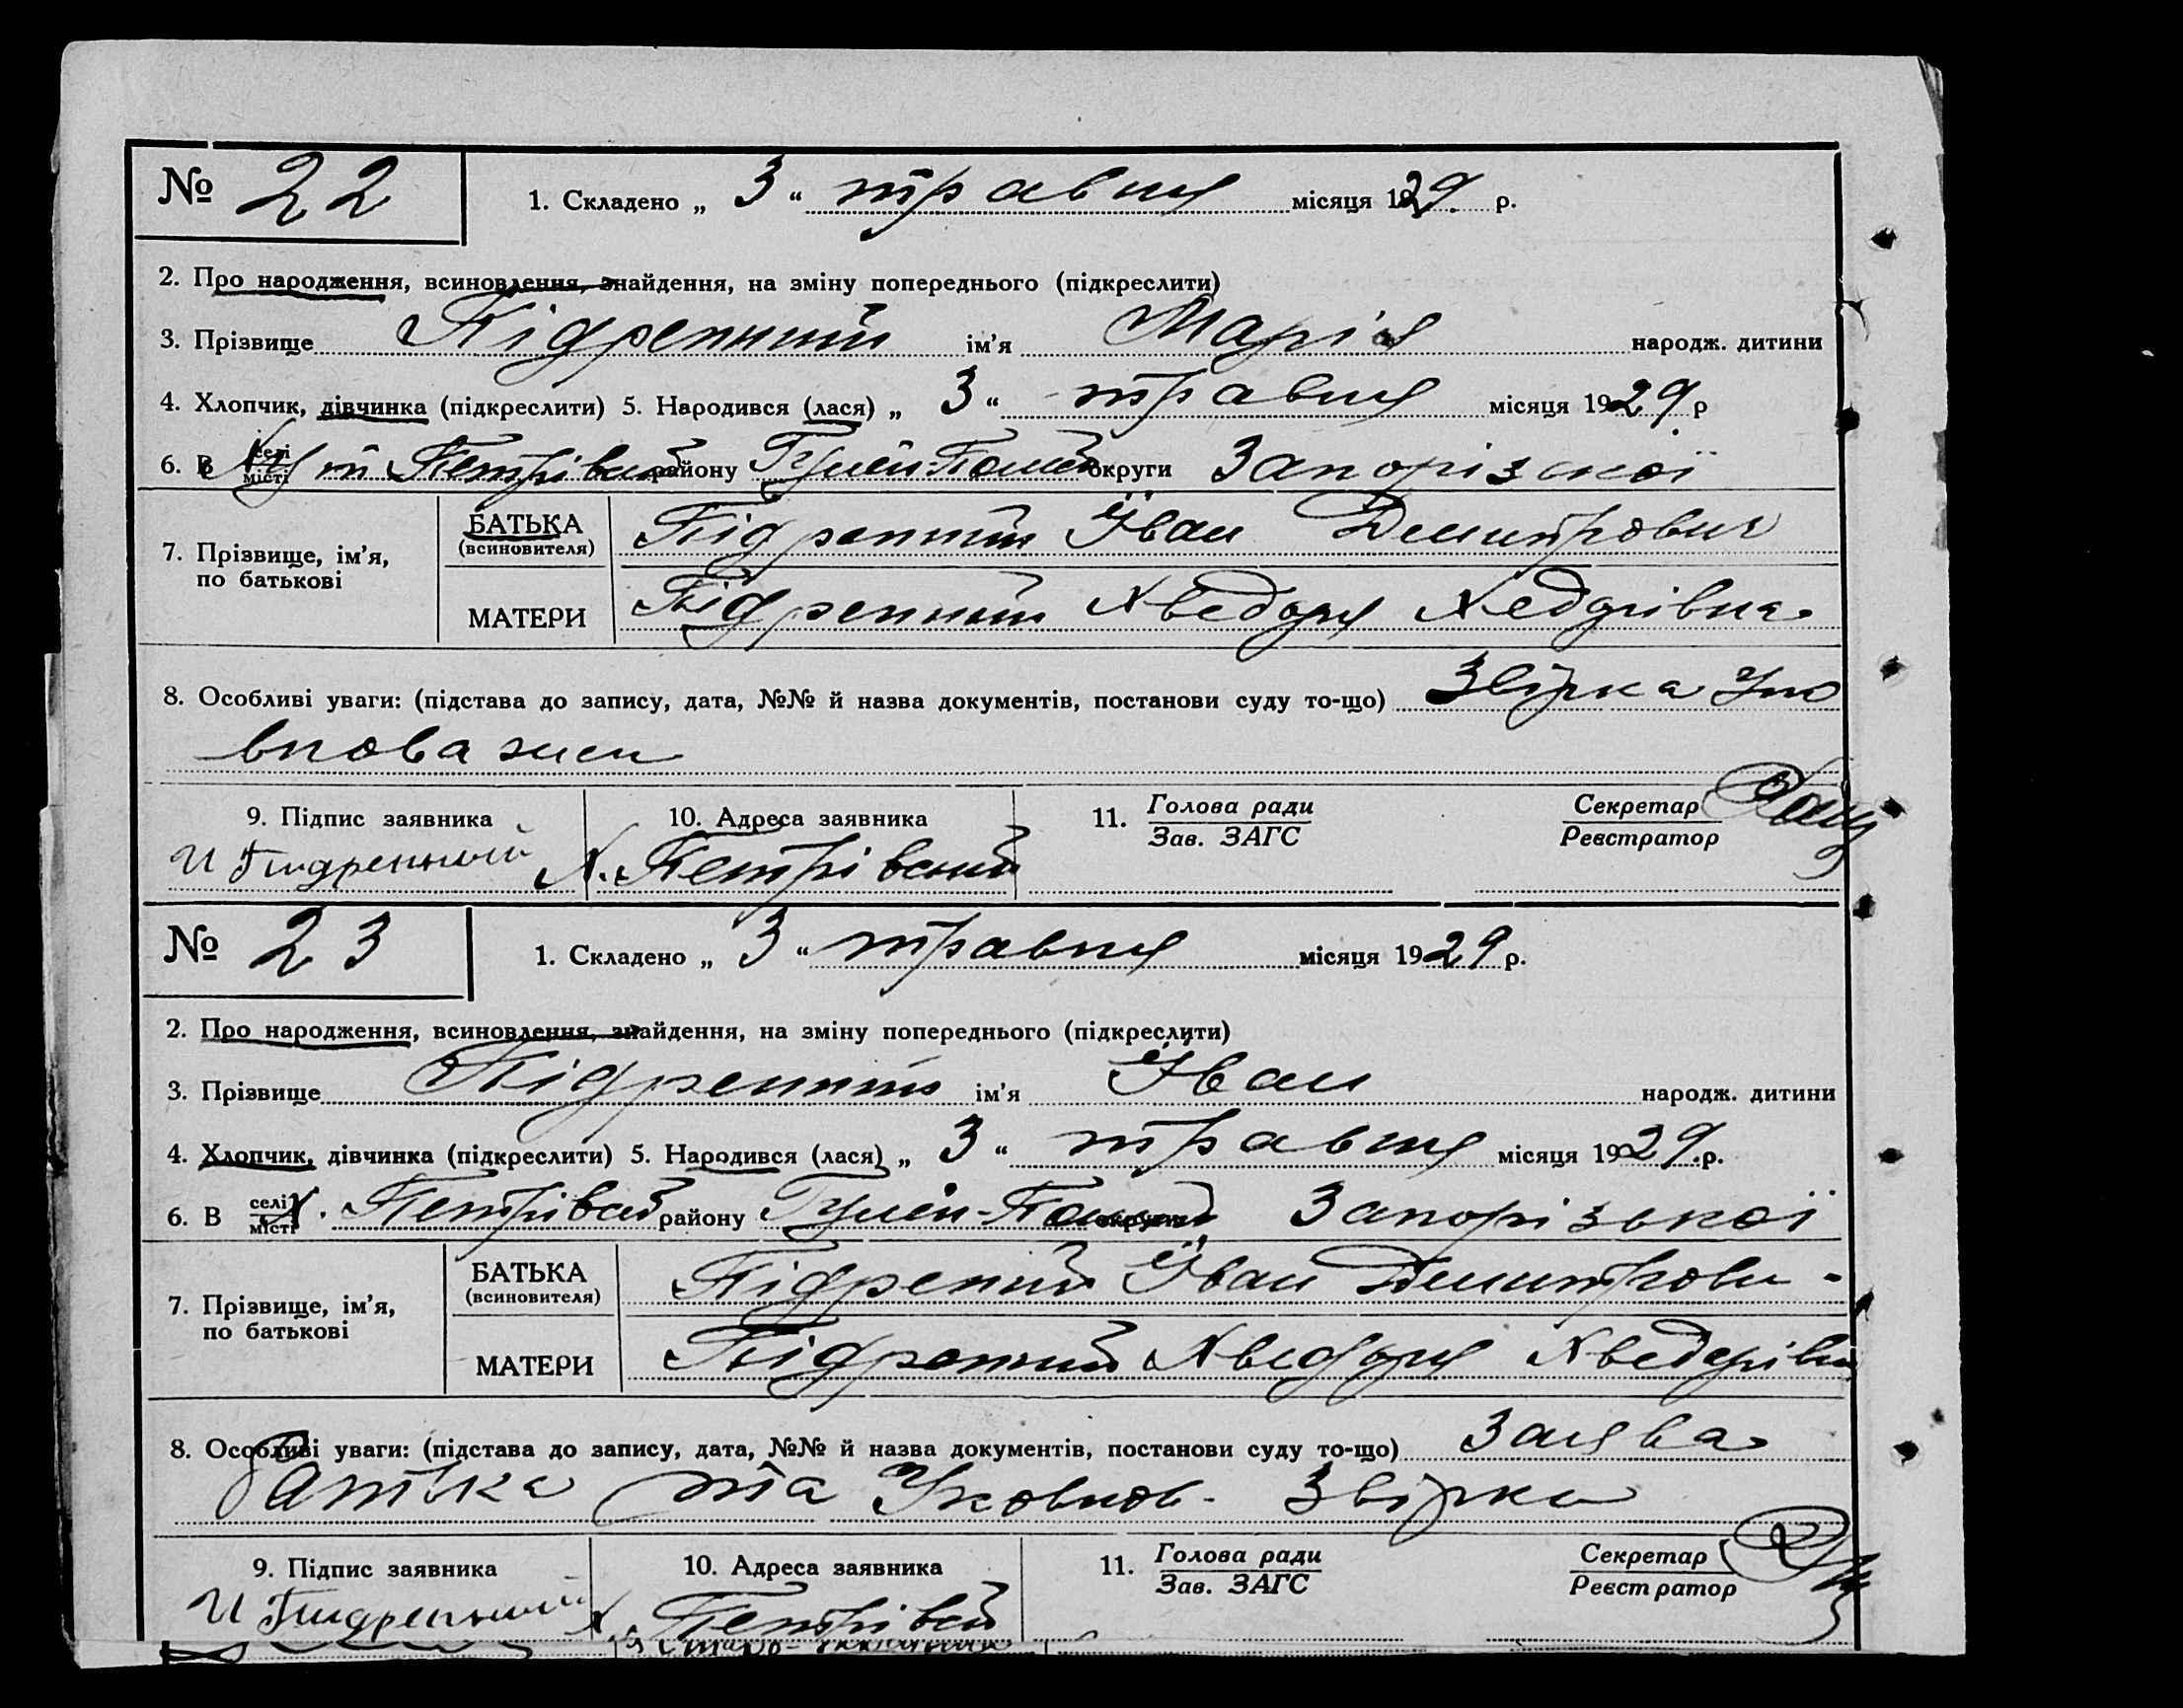 № 22
1. Складено „ 3 “ травня місяця 1929 р.
2. Про народження, всиновлення, знайдення, на зміну попереднього (підкреслити)
3. Прізвище Підрепний ім’я Марія народж. дитини
4. Хлопчик, дівчинка (підкреслити) 5. Народився (лася) „ 3 “ травня місяця 1929 р
6. В селі місті Петрівский району Гуляй-Поль округи Запорізської
7. Прізвище, ім’я, по батькові
БАТЬКА (всиновителя) Підрепний Іван Демитрович
МАТЕРИ Підрепний Хведоря Хведорівна
8. Особливі уваги: (підстава до запису, дата, №№ й назва документів, постанови суду то-що) Звірка Упо
вповажен
9. Підпис заявника 10. Адреса заявника 11. Голова ради Зав. ЗАГС Секретар Реєстратор
И Пидрепный Х. Петрівский
№ 23
1. Складено „ 3 “ травня місяця 1929 р.
2. Про народження, всиновлення, знайдення, на зміну попереднього (підкреслити)
3. Прізвище Підрепний ім’я Іван народж. дитини
4. Хлопчик, дівчинка (підкреслити) 5. Народився (лася) „ 3 “ травня місяця 1929 р.
6. В селі місті х. Петрівсь району Гуляй-Поль округи Запорізської
7. Прізвище, ім’я, по батькові
БАТЬКА (всиновителя) Підрепний Іван Демитрови-
МАТЕРИ Підрепний Хведоря Хведерівн
8. Особливі уваги: (підстава до запису, дата, №№ й назва документів, постанови суду то-що) Заява
батька та Уповнов. Звірка
9. Підпис заявника 10. Адреса заявника 11. Голова ради Зав. ЗАГС Секретар Реєстратор
И Пидрепный х. Петрівсь